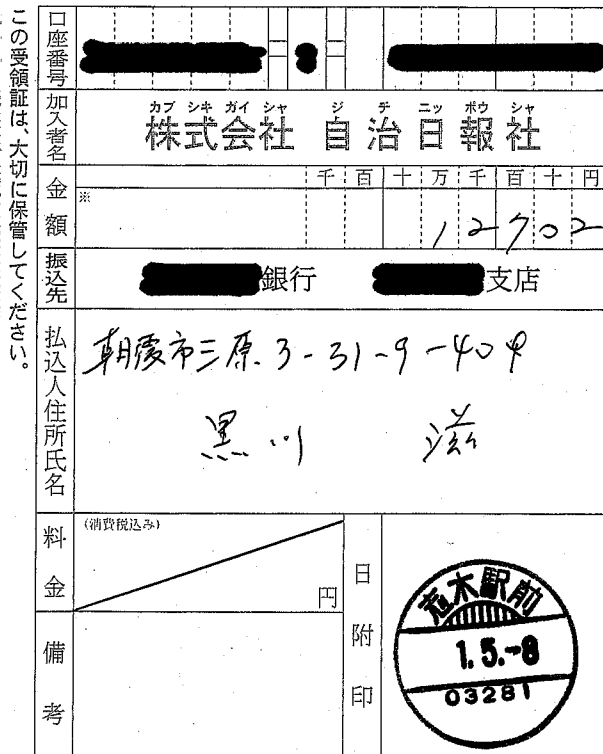 この受領証は、大切に保管してください。
口座番号
加入者名
カブ シキ ガイ シャ ジ チ ニッ ポウ シャ
株式会社 自治日報社
金額
千 百 十 万 千 百 十 円
※
12702
振込先
銀行 支店
払込人住所氏名
朝霞市三原3-31-9-404
黒川 滋
料金
(消費税込み)
円
備考
日附印
志木駅前
1.5.-8
03281